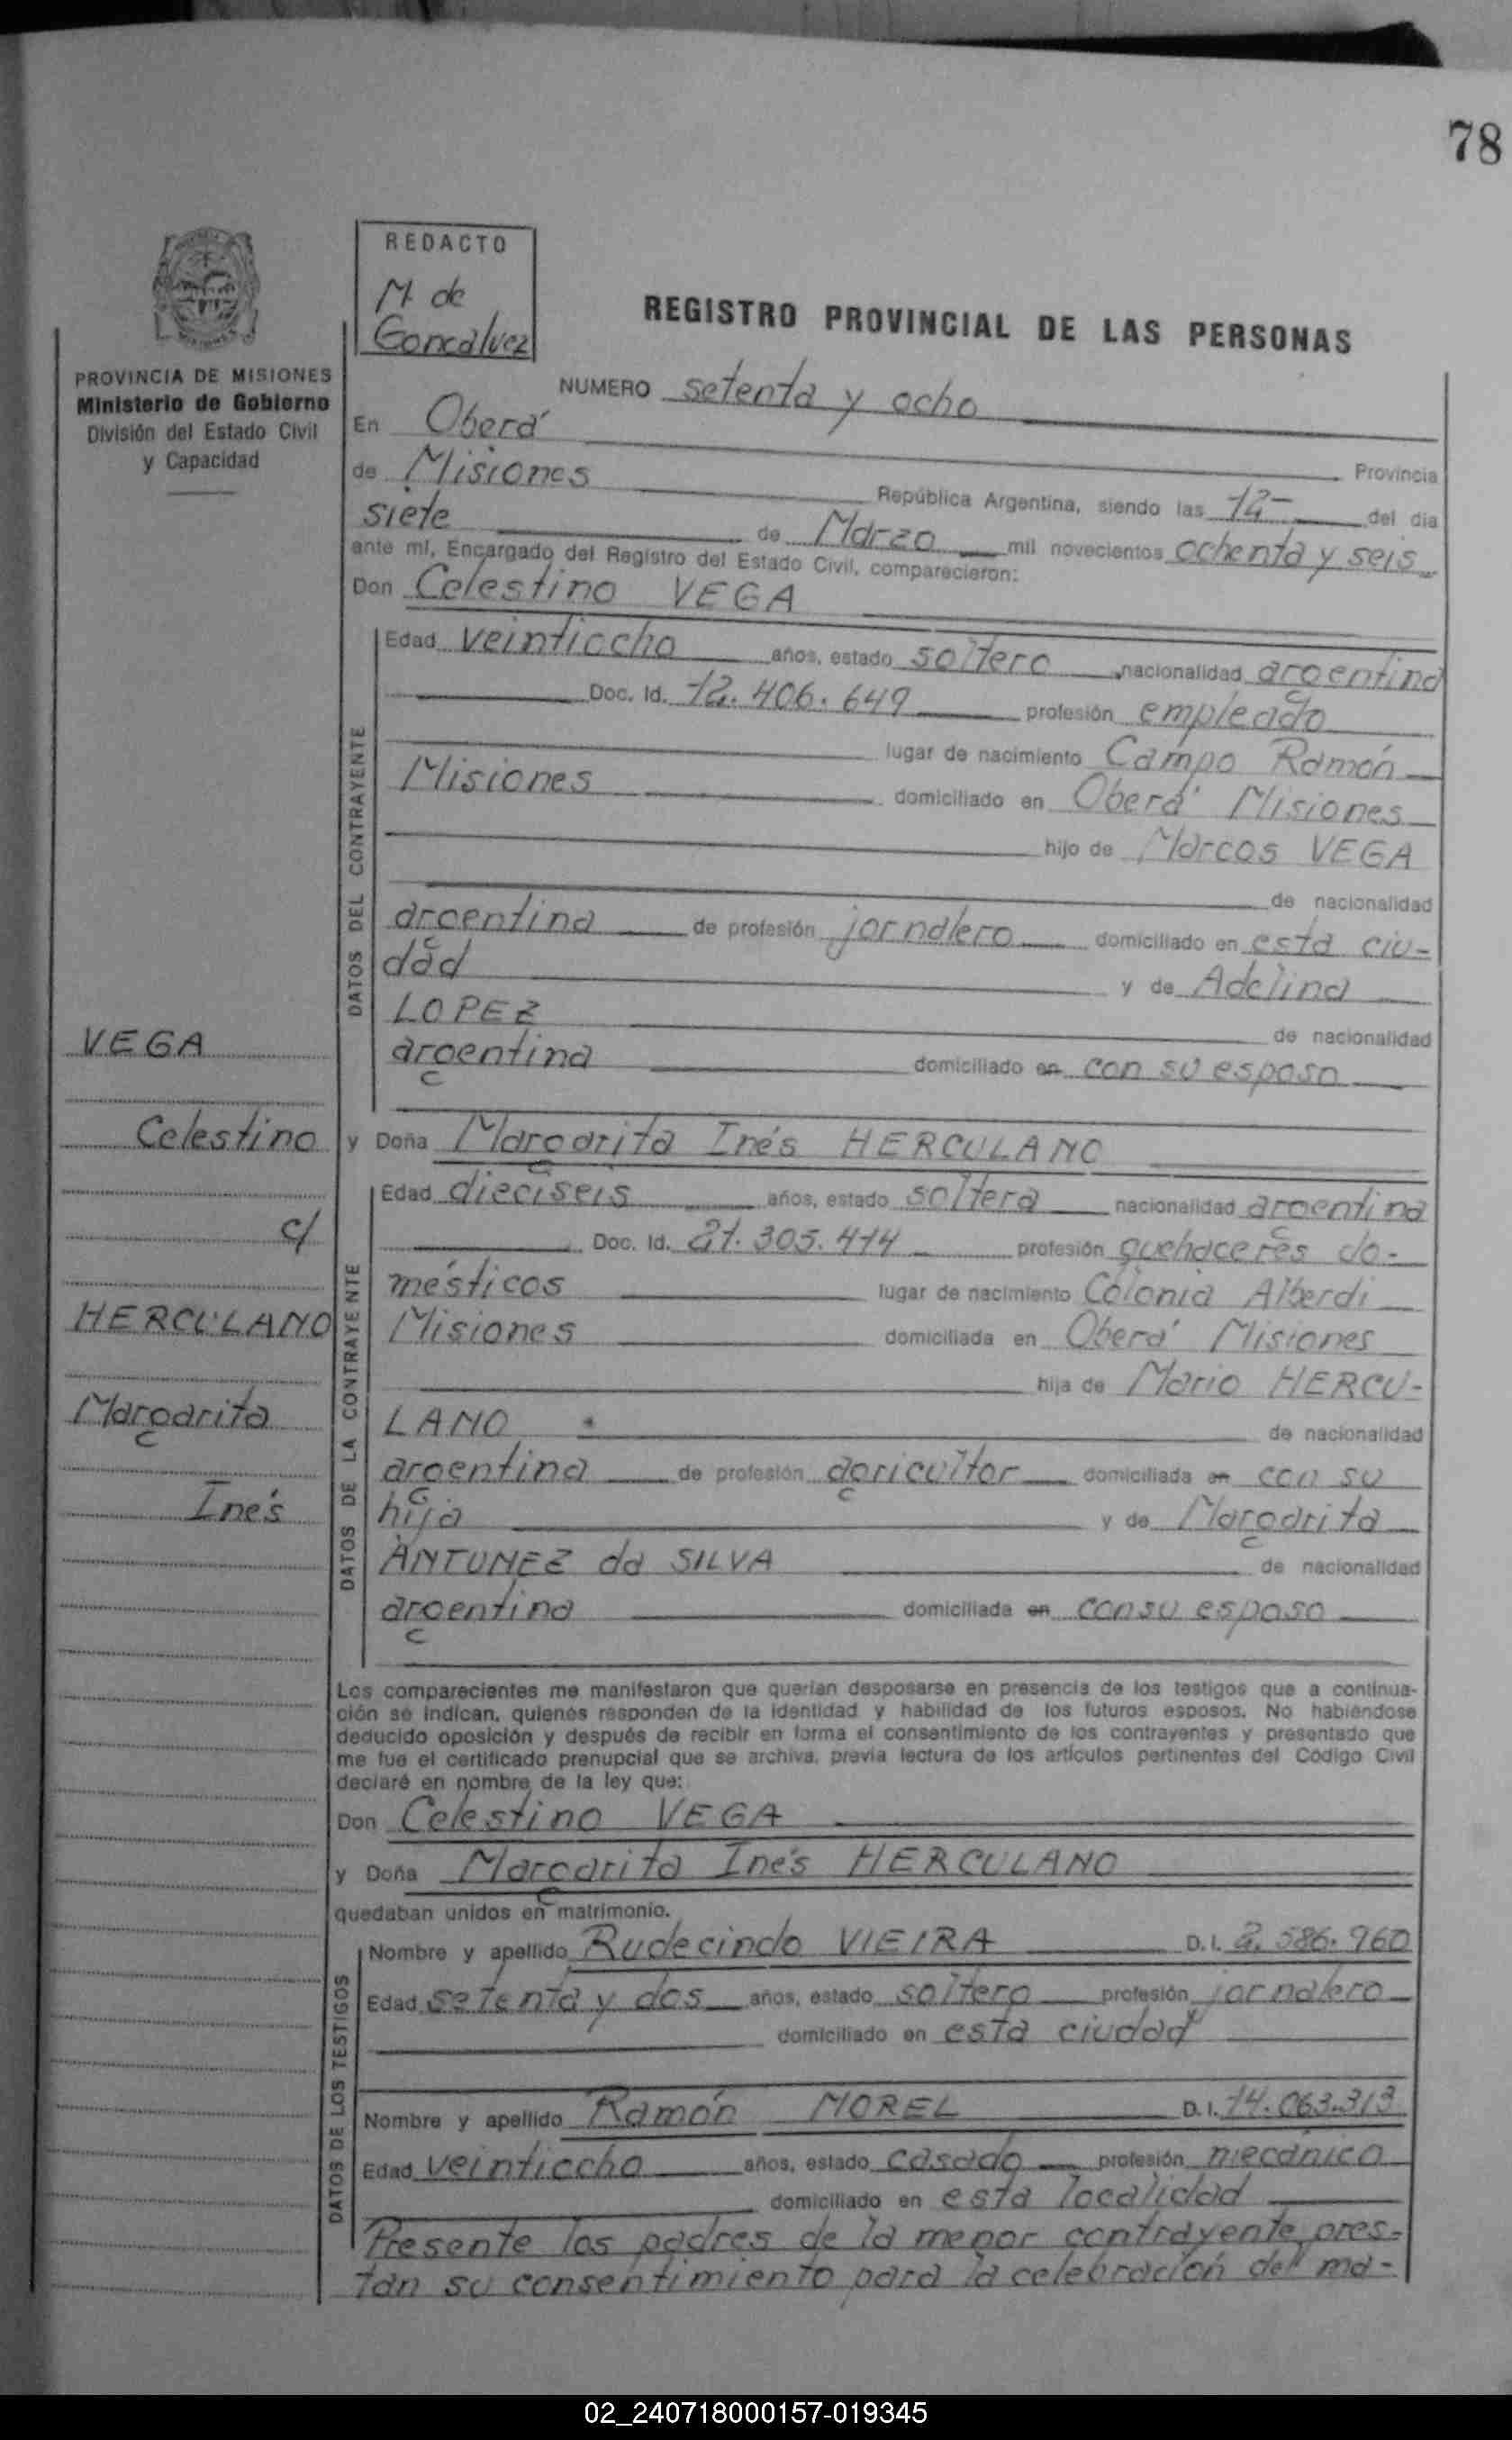 78
REDACTO
M. de
Goncalvez
REGISTRO PROVINCIAL DE LAS PERSONAS
PROVINCIA DE MISIONES
Ministerio de Gobierno
División del Estado Civil
y Capacidad
NUMERO setenta y ocho
En Oberá Provincia
de Misiones República Argentina, siendo las 12- del día
siete de Marzo mil novecientos ochenta y seis
ante mí, Encargado del Registro del Estado Civil, comparecieron:
Don Celestino VEGA
DATOS DEL CONTRAYENTE
Edad veintiocho años, estado soltero nacionalidad argentina
Doc. Id. 12.406.649 profesión empleado
lugar de nacimiento Campo Ramón
Misiones domiciliado en Oberá Misiones
hijo de Marcos VEGA
de nacionalidad
argentina de profesión jornalero domiciliado en esta ciu-
dad y de Adelina
LOPEZ de nacionalidad
argentina domiciliado en con su esposo
VEGA
Celestino
c/
HERCULANO
Margarita
Inés
y Doña Margarita Inés HERCULANO
DATOS DE LA CONTRAYENTE
Edad dieciseis años, estado soltera nacionalidad argentina
Doc. Id. 21.305.414 profesión quehaceres do-
mésticos lugar de nacimiento Colonia Alberdi
Misiones domiciliada en Oberá Misiones
hija de Mario HERCU-
LANO de nacionalidad
argentina de profesión agricultor domiciliada en con su
hija y de Margarita
ANTUNEZ da SILVA de nacionalidad
argentina domiciliada en con su esposo
Los comparecientes me manifestaron que querían desposarse en presencia de los testigos que a continua-
ción se indican, quienes responden de la identidad y habilidad de los futuros esposos. No habiéndose
deducido oposición y después de recibir en forma el consentimiento de los contrayentes y presentado que
me fue el certificado prenupcial que se archiva, previa lectura de los artículos pertinentes del Código Civil
declaré en nombre de la ley que:
Don Celestino VEGA
y Doña Margarita Inés HERCULANO
quedaban unidos en matrimonio.
DATOS DE LOS TESTIGOS
Nombre y apellido Rudecindo VIEIRA D.I. 2.586.960
Edad setenta y dos años, estado soltero profesión jornalero
domiciliado en esta ciudad
Nombre y apellido Ramón MOREL D.I. 14.063.313
Edad veintiocho años, estado casado profesión mecánico
domiciliado en esta localidad
Presente los padres de la menor contrayente pres-
tan su consentimiento para la celebración del ma-
02_240718000157-019345